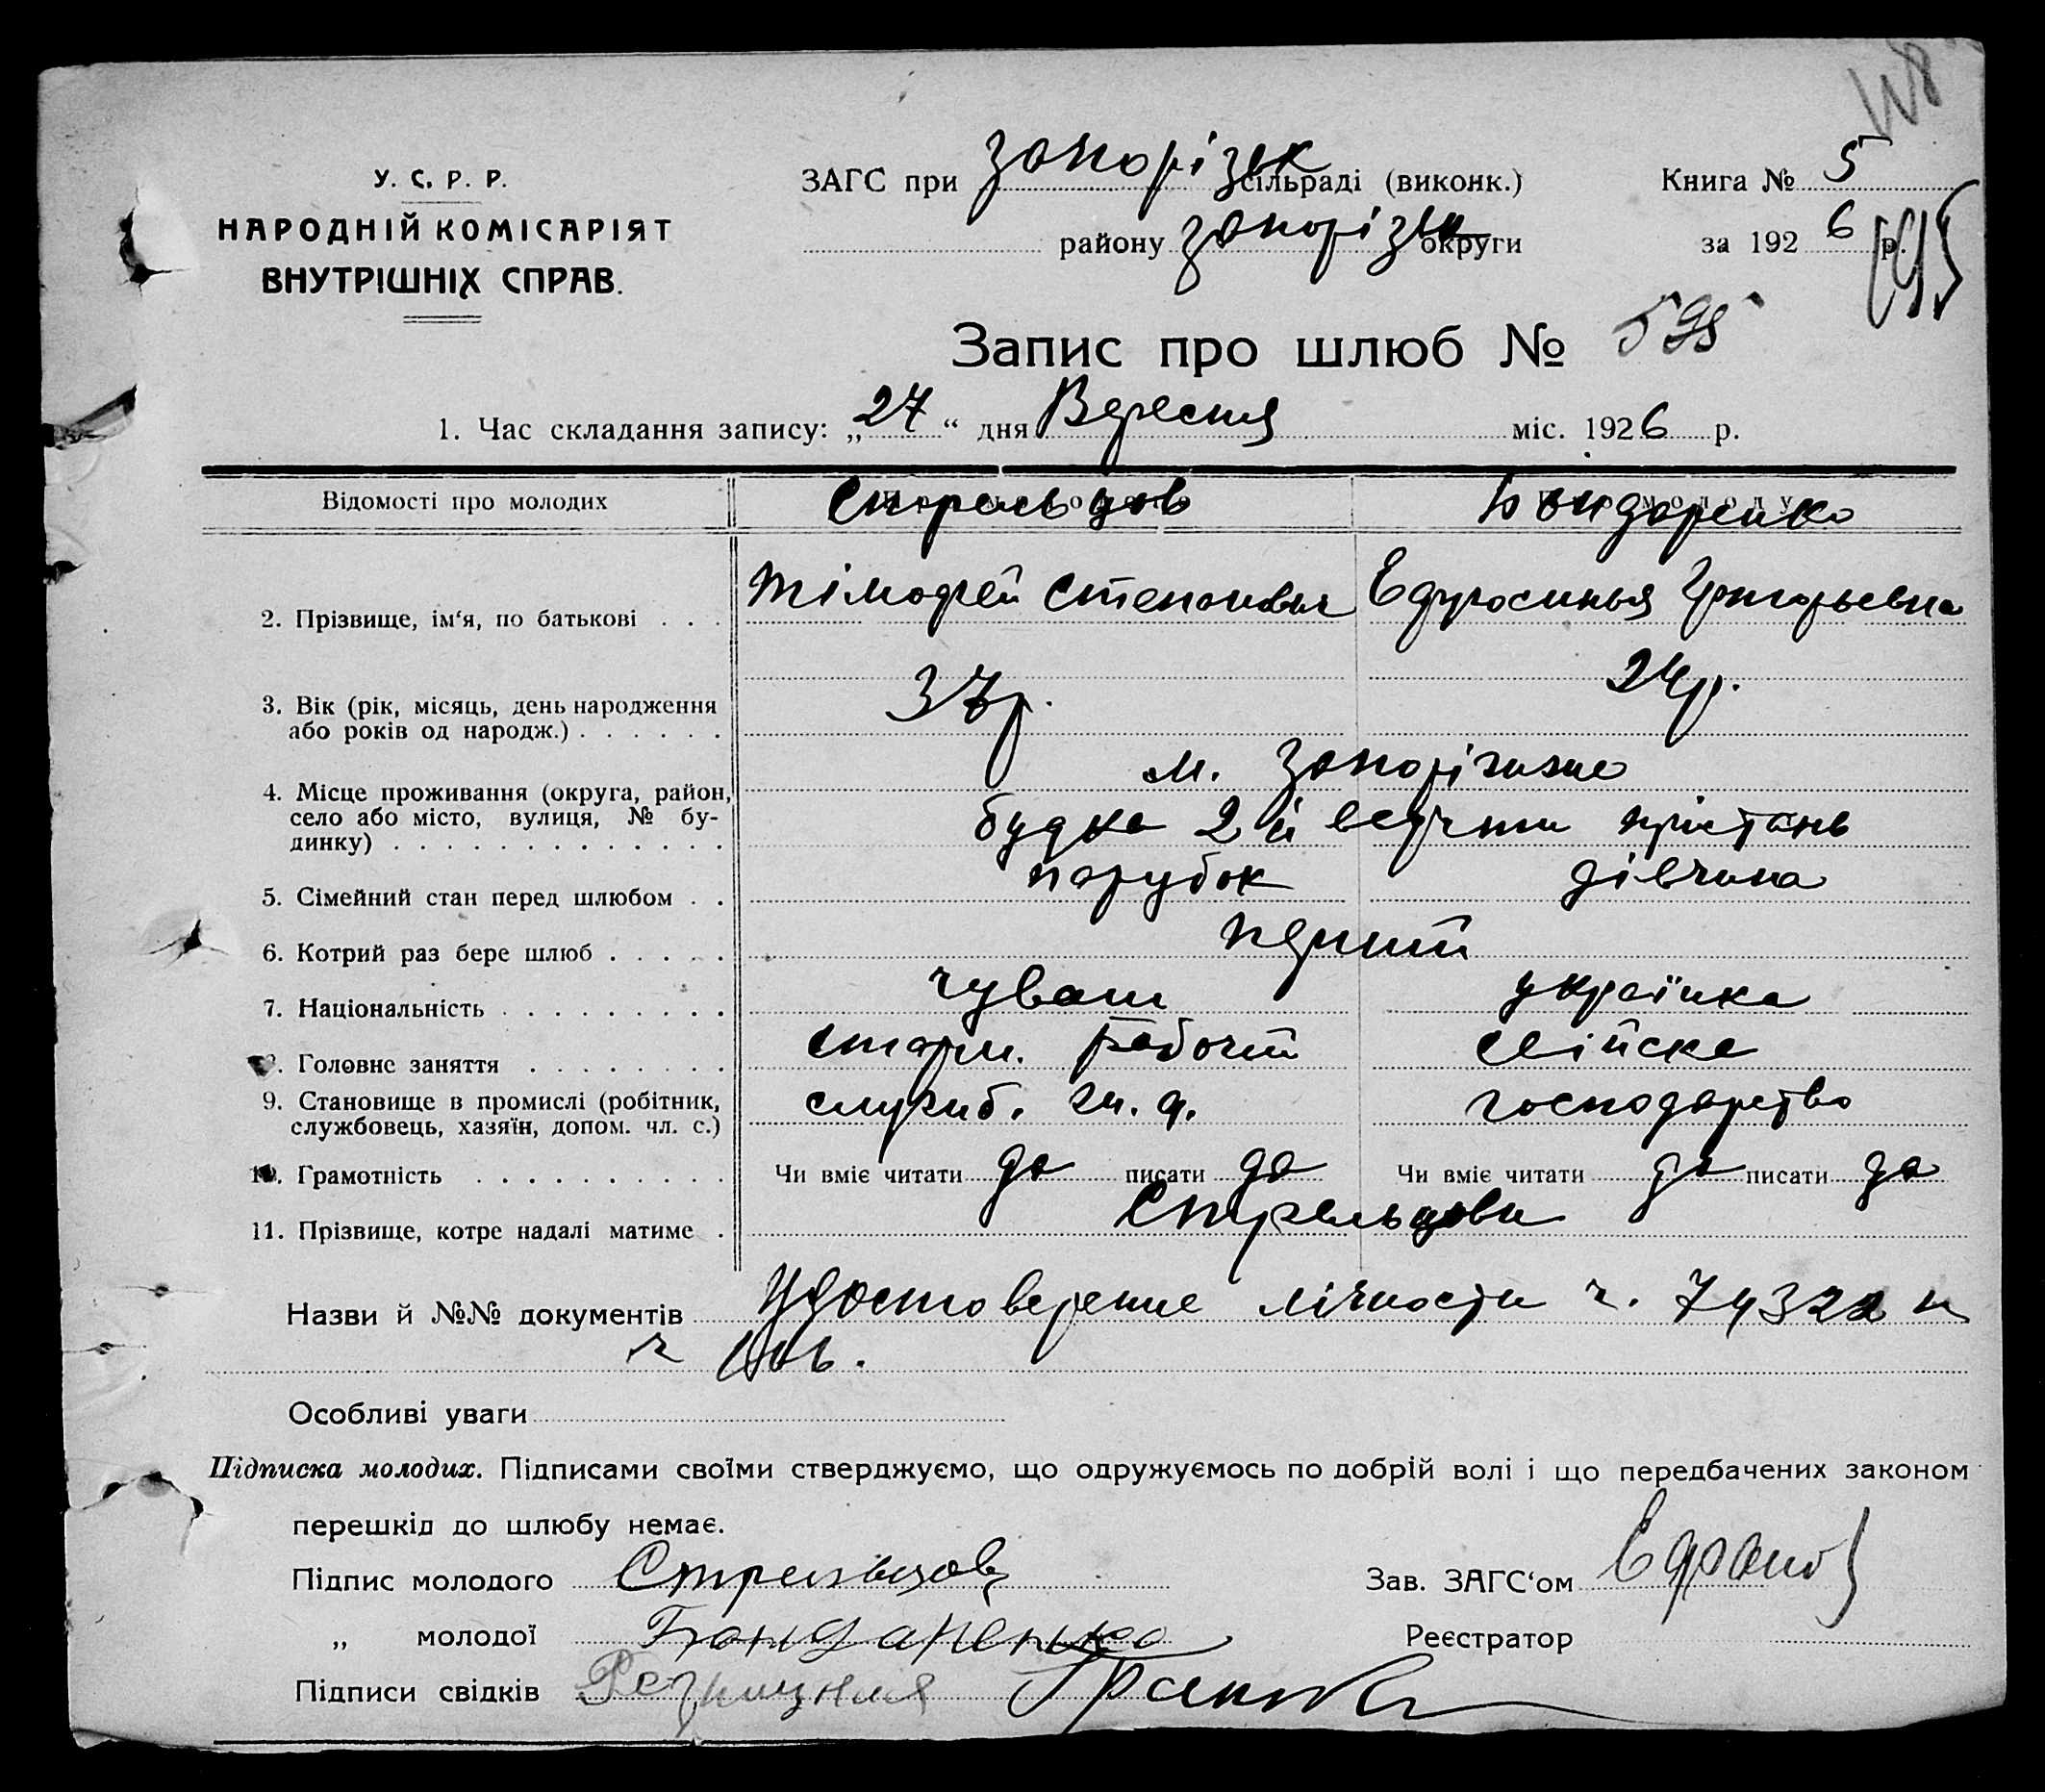 У. С. Р. Р.
НАРОДНІЙ КОМІСАРІЯТ
ВНУТРІШНІХ СПРАВ.
ЗАГС при Запорізьк сільраді (виконк.)
району Запорізьк округи
Книга № 5
за 1926 р.
195
Запис про шлюб № 595
1. Час складання запису: „27“ дня Вересня міс. 1926 р.
Відомості про молодих Стрельцов Бондаренко
2. Прізвище, ім‘я, по батькові . . . Тімофей Степанович Ефросинья Григорьевна
3. Вік (рік, місяць, день народження
або років од народж.) . . . . . . 37 р. 24 р.
4. Місце проживання (округа, район,
село або місто, вулиця, № бу-
динку) . . . . . . . . . . . . .
м. Запоріжже
будка 2 й пристань
5. Сімейний стан перед шлюбом . . парубок дівчина
6. Котрий раз бере шлюб . . . . . перший
7. Національність . . . . . . . . . чуваш українка
8. Головне заняття . . . . . . . . рабочий сільске
9. Становище в промислі (робітник,
службовець, хазяїн, допом. чл. с.) служб. господарство
10. Грамотність . . . . . . . . . . Чи вміє читати да писати да Чи вміє читати да писати да
11. Прізвище, котре надалі матиме . Стрельцови
Назви й №№ документів Удостоверение лічности ч. 74322 и
Особливі уваги
Підписка молодих. Підписами своїми стверджуємо, що одружуємось по добрій волі і що передбачених законом
перешкід до шлюбу немає.
Підпис молодого Стрельцов
Зав. ЗАГС‘ом
„ молодої Бонданенко
Реєстратор
Підписи свідків